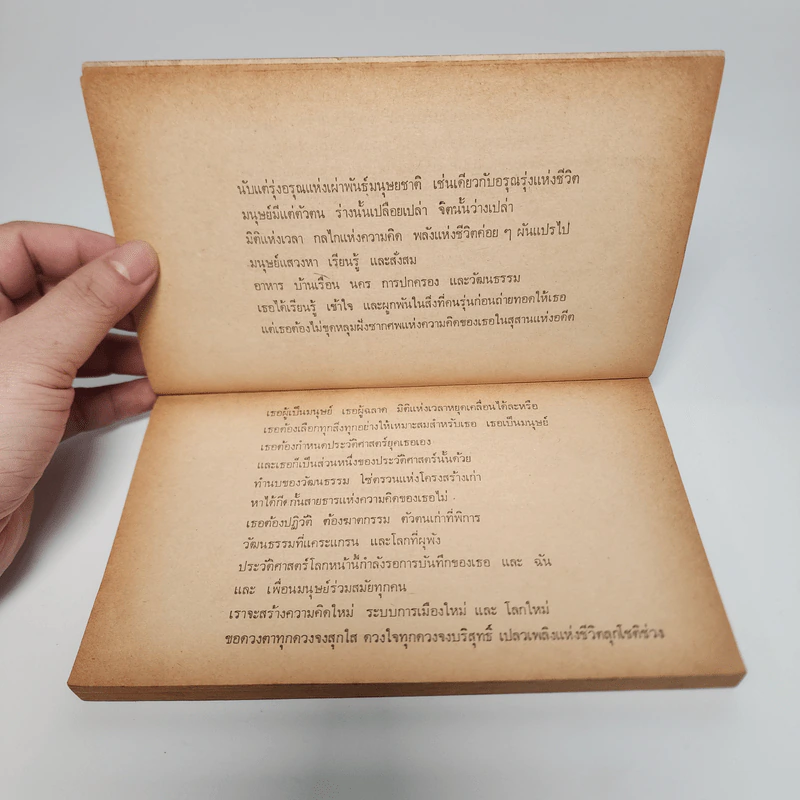 นับแต่รุ่งอรุณแห่งเผ่าพันธุ์มนุษยชาติ เช่นเดียวกับอรุณรุ่งแห่งชีวิต
มนุษย์มีแต่ตัวตน ร่างนั้นเปลือยเปล่า จิตนั้นว่างเปล่า
มิติแห่งเวลา กลไกแห่งความคิด พลังแห่งชีวิตค่อย ๆ ผันแปรไป
มนุษย์แสวงหา เรียนรู้ และสั่งสม
อาหาร บ้านเรือน นคร การปกครอง และวัฒนธรรม
เธอได้เรียนรู้ เข้าใจ และผูกพันในสิ่งที่คนรุ่นก่อนถ่ายทอดให้เธอ
แต่เธอต้องไม่ขุดหลุมฝังซากศพแห่งความคิดของเธอในสุสานแห่งอดีต
เธอผู้เป็นมนุษย์ เธอผู้ฉลาด มิติแห่งเวลาหยุดเคลื่อนได้ละหรือ
เธอต้องเลือกทุกสิ่งทุกอย่างให้เหมาะสมสำหรับเธอ เธอเป็นมนุษย์
เธอต้องกำหนดประวัติศาสตร์ยุคเธอเอง
และเธอก็เป็นส่วนหนึ่งของประวัติศาสตร์นั้นด้วย
ทำนบของวัฒนธรรม โซ่ตรวนแห่งโครงสร้างเก่า
หาได้กีดกั้นสายธารแห่งความคิดของเธอไม่
เธอต้องปฏิวัติ ต้องฆาตกรรม ตัวตนเก่าที่พิการ
วัฒนธรรมที่แคระแกรน และโลกที่ผุพัง
ประวัติศาสตร์โลกหน้านี้กำลังรอการบันทึกของเธอ และ ฉัน
และ เพื่อนมนุษย์ร่วมสมัยทุกคน
เราจะสร้างความคิดใหม่ ระบบการเมืองใหม่ และ โลกใหม่
ขอดวงตาทุกดวงจงสุกใส ดวงใจทุกดวงจงบริสุทธิ์ เปลวเพลิงแห่งชีวิตลุกโชติช่วง